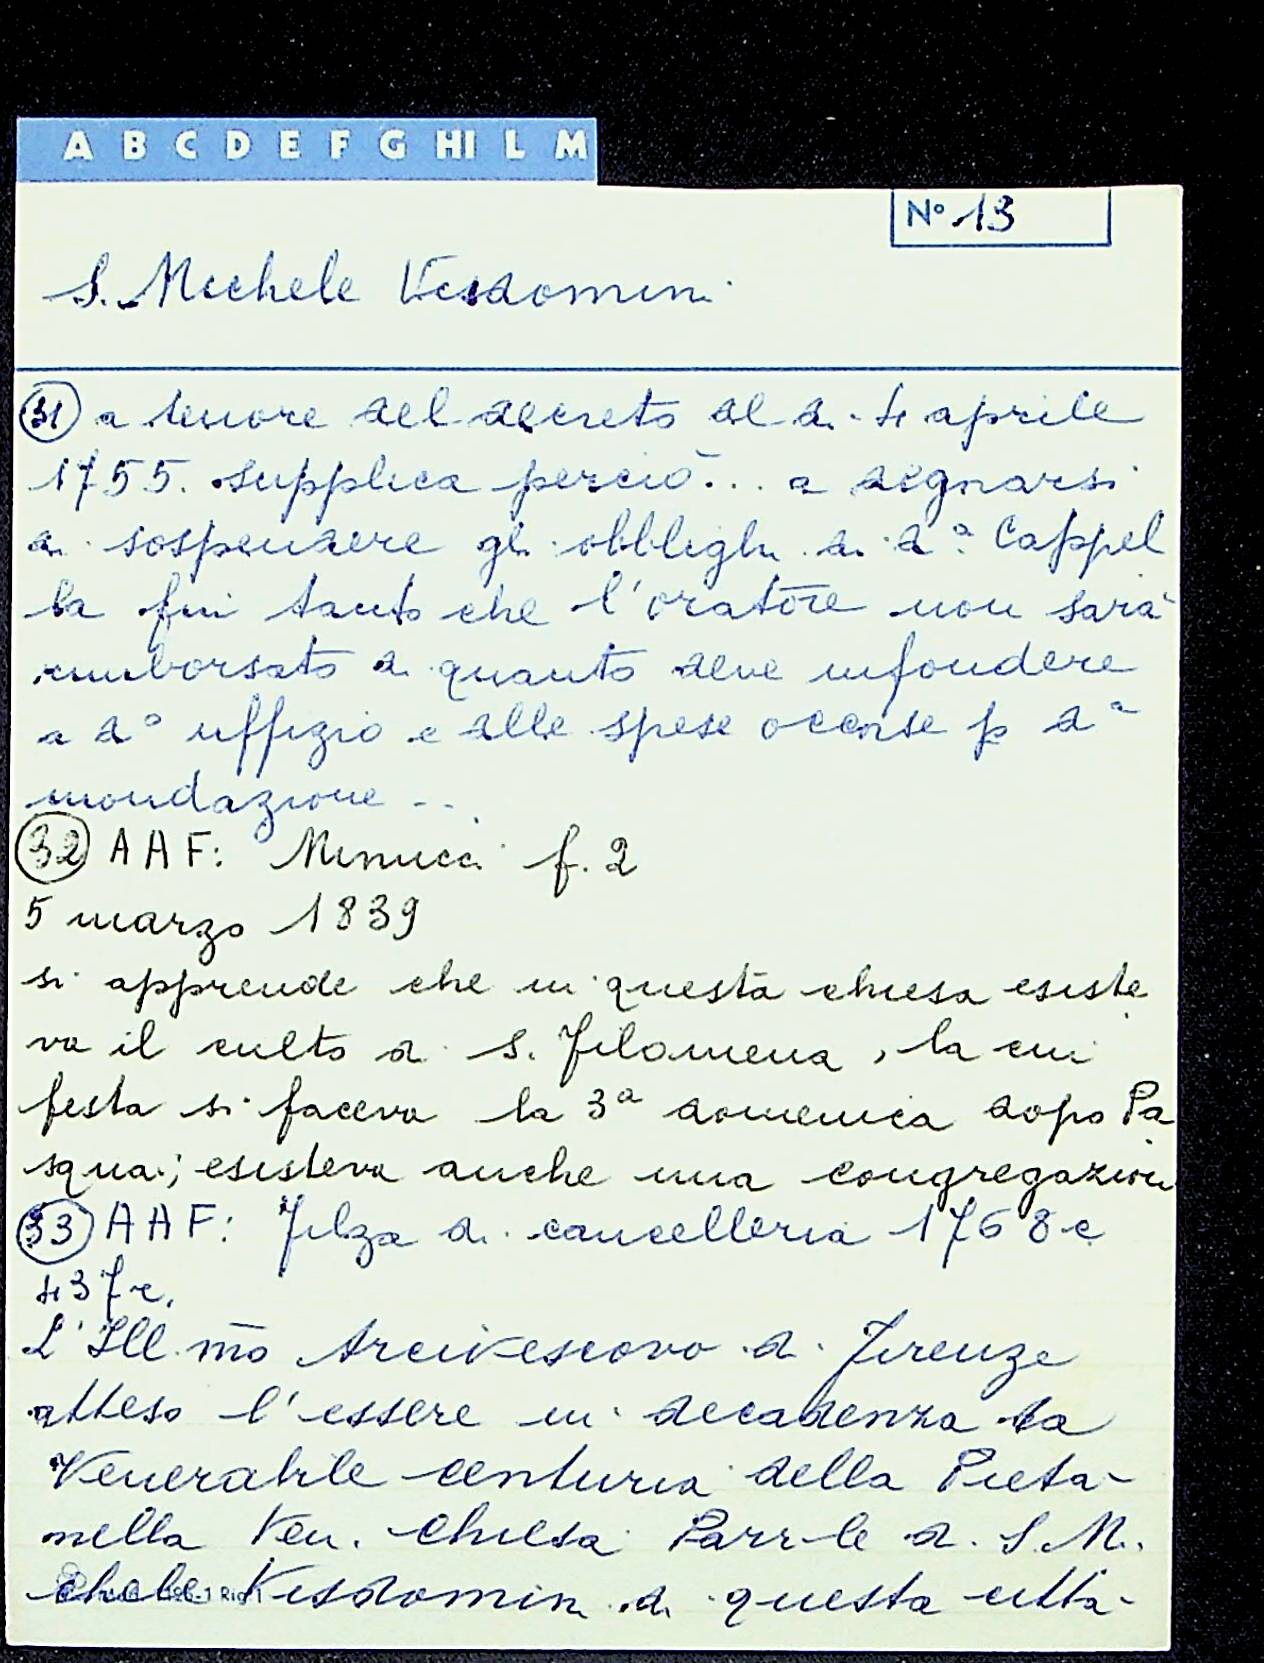 A B C D E F G HI L M
N° 13
S. Michele Visdomini
31 a tenore del decreto del dì 4 aprile
1755. supplica perciò... a degnarsi
di sospendere gli obblighi di d.ª Cappel
la fin tanto che l'oratore non sarà
rimborsato di quanto deve infondere
a d° uffizio e alle spese occorse p d.ª
inondazione ..
32 AAF: Minucci f. 2
5 marzo 1839
si apprende che in questa chiesa esiste
va il culto di S. Filomena, la cui
festa si faceva la 3ª domenica dopo Pa
squa; esisteva anche una congregazion
33 AAF: Filza di cancelleria 1768 c
437r.
L'Ill.mo Arcivescovo di Firenze
atteso l'essere in decadenza la
Venerabile centuria della Pietà
nella Ven. Chiesa Parr-le di S. Mi
chele Visdomini di questa città